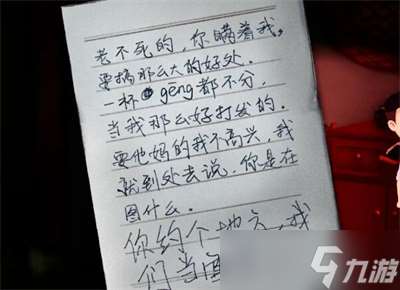 老不死的，你瞒着我，
要搞那么大的好处．
一杯gēng都不分．
当我那么好打发的．
要他妈的我不高兴，我
就到处去说．你是在
图什么．
你约个地方，我
们当面
九游